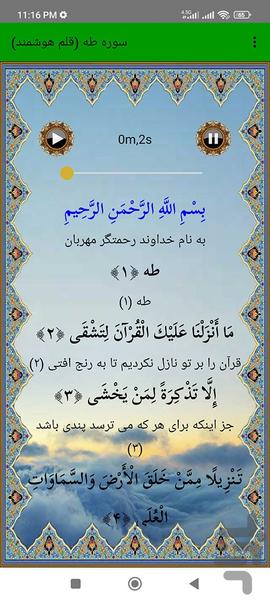 11:16 PM
سوره طه (قلم هوشمند)
0m,2s
بِسْمِ اللَّهِ الرَّحْمَنِ الرَّحِيمِ
به نام خداوند رحمتگر مهربان
طه ﴿۱﴾
طه (۱)
مَا أَنْزَلْنَا عَلَيْكَ الْقُرْآنَ لِتَشْقَى ﴿۲﴾
قرآن را بر تو نازل نکردیم تا به رنج افتی (۲)
إِلَّا تَذْكِرَةً لِمَنْ يَخْشَى ﴿۳﴾
جز اینکه برای هر که می ترسد پندی باشد
(۳)
تَنْزِيلًا مِمَّنْ خَلَقَ الْأَرْضَ وَالسَّمَاوَاتِ
الْعُلَى ﴿۴﴾